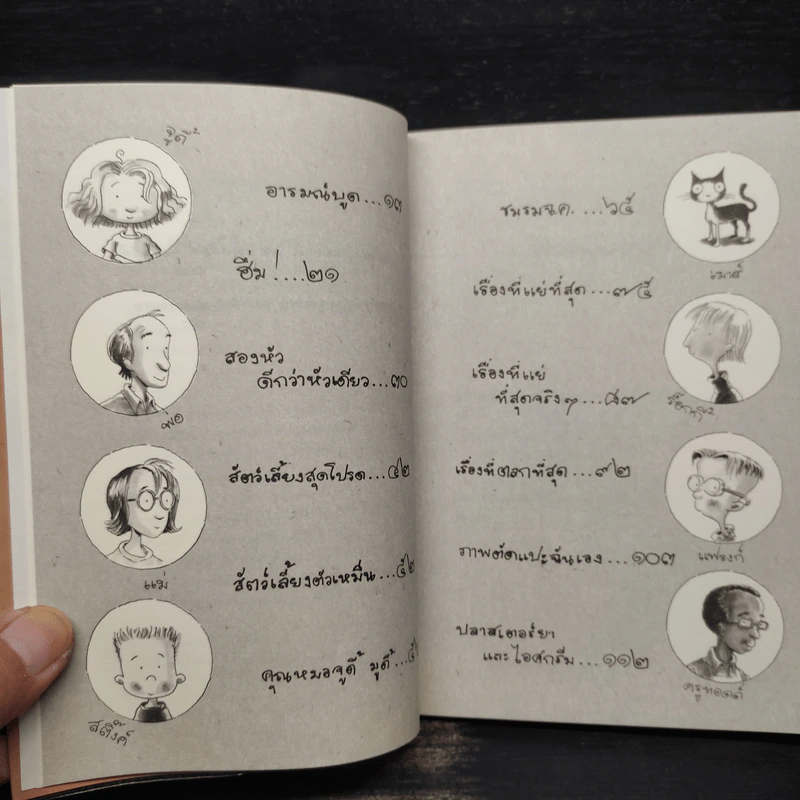 จูดี้
อารมณ์บูด...๑๓
ฮึ่ม!...๒๑
พ่อ
สองหัว
ดีกว่าหัวเดียว...๓๐
แม่
สัตว์เลี้ยงสุดโปรด...๔๒
สัตว์เลี้ยงตัวเหม็น...๕๒
สติ๊งค์
คุณหมอจูดี้ มูดี้...
ชมรมฉ.ค. ...๖๕
เมาส์
เรื่องที่แย่ที่สุด...๗๕
เรื่องที่แย่
ที่สุดจริงๆ...๘๗
ร็อกกี้
เรื่องที่ตลกที่สุด...๙๒
แฟรงก์
ภาพตัดแปะฉันเอง...๑๐๓
ปลาสเตอร์ยา
และไอศกรีม...๑๑๒
ครูทอดด์